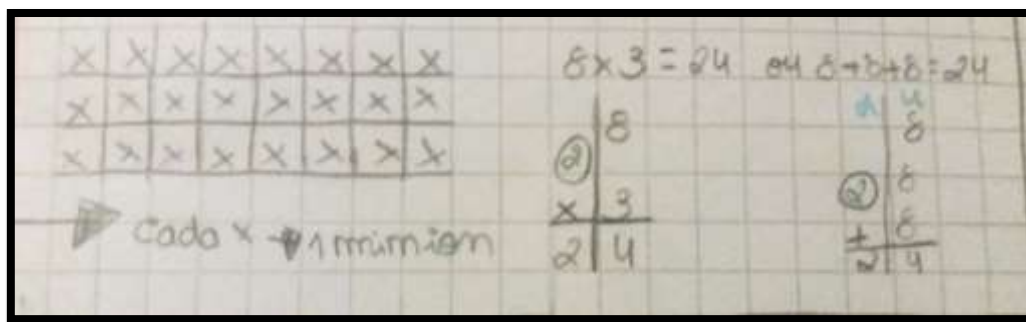 x x x x x x x x
x x x x x x x x
x x x x x x x x
cada x → 1 minion
8 x 3 = 24 ou 8+8+8=24
8
2
x 3
2 4
d u
8
2 8
+ 8
2 4